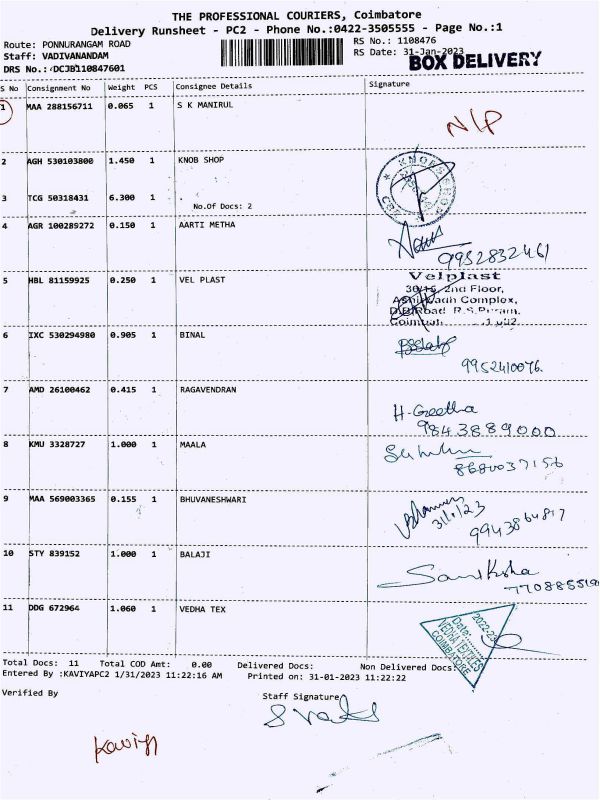 THE PROFESSIONAL COURIERS, Coimbatore
Delivery Runsheet - PC2 - Phone No.:0422-3505555 - Page No.:1
Route: PONNURANGAM ROAD
RS No.: 1108476
Staff: VADIVANANDAM
RS Date: 31-Jan-2023
DRS No.: DCJB110847601
BOX DELIVERY
S No Consignment No Weight PCS Consignee Details Signature
1 MAA 288156711 0.065 1 S K MANIRUL
N/P
2 AGH 530103800 1.450 1 KNOB SHOP
KNOBS SHOP
CBE
3 TCG 50318431 6.300 1 No.Of Docs: 2
4 AGR 100289272 0.150 1 AARTI METHA
9952832461
5 HBL 81159925 0.250 1 VEL PLAST
Velplast
30/15, 2nd Floor,
Complex,
D.B.Road R.S.Puram,
6 IXC 530294980 0.905 1 BINAL
9952410076.
7 AMD 26100462 0.415 1 RAGAVENDRAN
H-Geetha
9843889000
8 KMU 3328727 1.000 1 MAALA
8680037156
9 MAA 569003365 0.155 1 BHUVANESHWARI
31/1/23
9943864817
10 STY 839152 1.000 1 BALAJI
Samiksha
11 DDG 672964 1.060 1 VEDHA TEX
2022-23
Date:
VEDHA TEXTILES
COIMBATORE
Total Docs: 11 Total COD Amt: 0.00 Delivered Docs: Non Delivered Docs:
Entered By :KAVIYAPC2 1/31/2023 11:22:16 AM Printed on: 31-01-2023 11:22:22
Verified By
Staff Signature
Kaviya